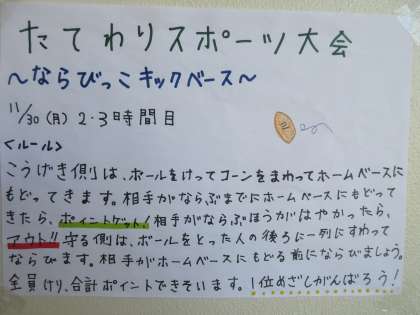 たてわりスポーツ大会
～ならびっこキックベース～
11/30(月) 2・3時間目
<ルール>
こうげき側は、ボールをけってコーンをまわってホームベースに
もどってきます。相手がならぶまでにホームベースにもどって
きたら、ポイントゲット!相手がならぶほうがはやかったら、
アウト!!守る側は、ボールをとった人の後ろに一列にすわって
ならびます。相手がホームベースにもどる前にならびましょう。
全員けり、合計ポイントできそいます。1位めざしがんばろう!